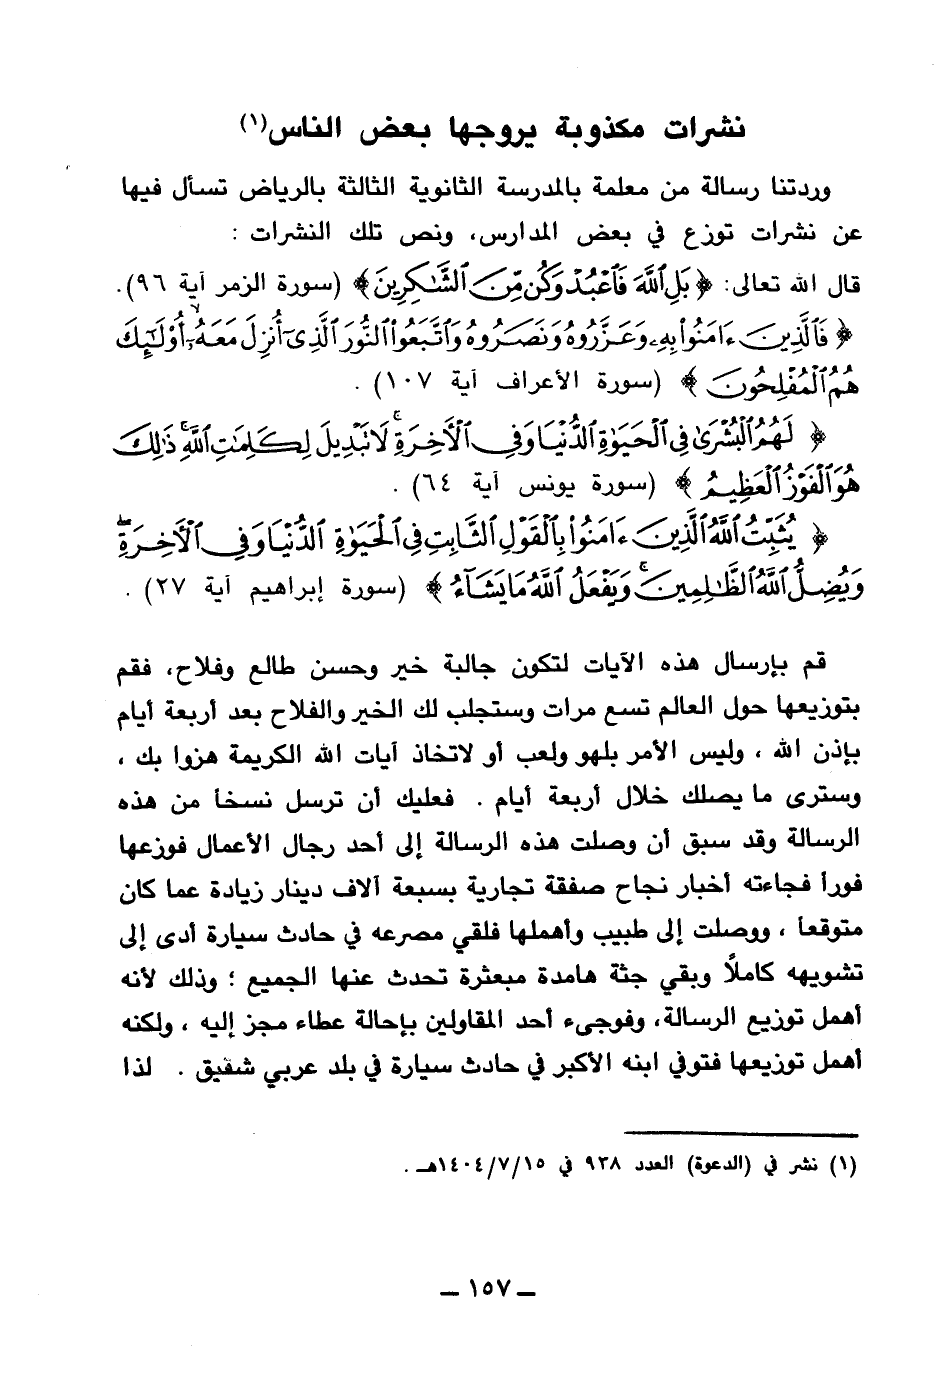 نشرات مكذوبة يروجها بعض الناس(١)
وردتنا رسالة من معلمة بالمدرسة الثانوية الثالثة بالرياض تسأل فيها
عن نشرات توزع في بعض المدارس، ونص تلك النشرات :
قال الله تعالى: ﴿بَلِ ٱللَّهَ فَٱعْبُدْ وَكُن مِّنَ ٱلشَّـٰكِرِينَ﴾ (سورة الزمر آية ٩٦).
﴿ فَٱلَّذِينَ ءَامَنُواْ بِهِۦ وَعَزَّرُوهُ وَنَصَرُوهُ وَٱتَّبَعُواْ ٱلنُّورَ ٱلَّذِىٓ أُنزِلَ مَعَهُۥٓ أُوْلَـٰٓئِكَ
هُمُ ٱلْمُفْلِحُونَ ﴾ (سورة الأعراف آية ١٠٧) .
﴿ لَهُمُ ٱلْبُشْرَىٰ فِى ٱلْحَيَوٰةِ ٱلدُّنْيَا وَفِى ٱلْأَخِرَةِ ۚ لَا تَبْدِيلَ لِكَلِمَـٰتِ ٱللَّهِ ۚ ذَٰلِكَ
هُوَ ٱلْفَوْزُ ٱلْعَظِيمُ ﴾ (سورة يونس آية ٦٤) .
﴿ يُثَبِّتُ ٱللَّهُ ٱلَّذِينَ ءَامَنُواْ بِٱلْقَوْلِ ٱلثَّابِتِ فِى ٱلْحَيَوٰةِ ٱلدُّنْيَا وَفِى ٱلْأَخِرَةِ ۖ
وَيُضِلُّ ٱللَّهُ ٱلظَّـٰلِمِينَ ۚ وَيَفْعَلُ ٱللَّهُ مَا يَشَآءُ ﴾ (سورة إبراهيم آية ٢٧) .
قم بإرسال هذه الآيات لتكون جالبة خير وحسن طالع وفلاح، فقم
بتوزيعها حول العالم تسع مرات وستجلب لك الخير والفلاح بعد أربعة أيام
بإذن الله ، وليس الأمر بلهو ولعب أو لاتخاذ آيات الله الكريمة هزوا بك ،
وسترى ما يصلك خلال أربعة أيام . فعليك أن ترسل نسخاً من هذه
الرسالة وقد سبق أن وصلت هذه الرسالة إلى أحد رجال الأعمال فوزعها
فوراً فجاءته أخبار نجاح صفقة تجارية بسبعة آلاف دينار زيادة عما كان
متوقعاً ، ووصلت إلى طبيب وأهملها فلقي مصرعه في حادث سيارة أدى إلى
تشويهه كاملاً وبقي جثة هامدة مبعثرة تحدث عنها الجميع ؛ وذلك لأنه
أهمل توزيع الرسالة، وفوجيء أحد المقاولين بإحالة عطاء مجز إليه ، ولكنه
أهمل توزيعها فتوفي ابنه الأكبر في حادث سيارة في بلد عربي شقيق . لذا
(١) نشر في (الدعوة) العدد ٩٣٨ في ١٤٠٤/٧/١٥هـ .
ــ ١٥٧ ــ